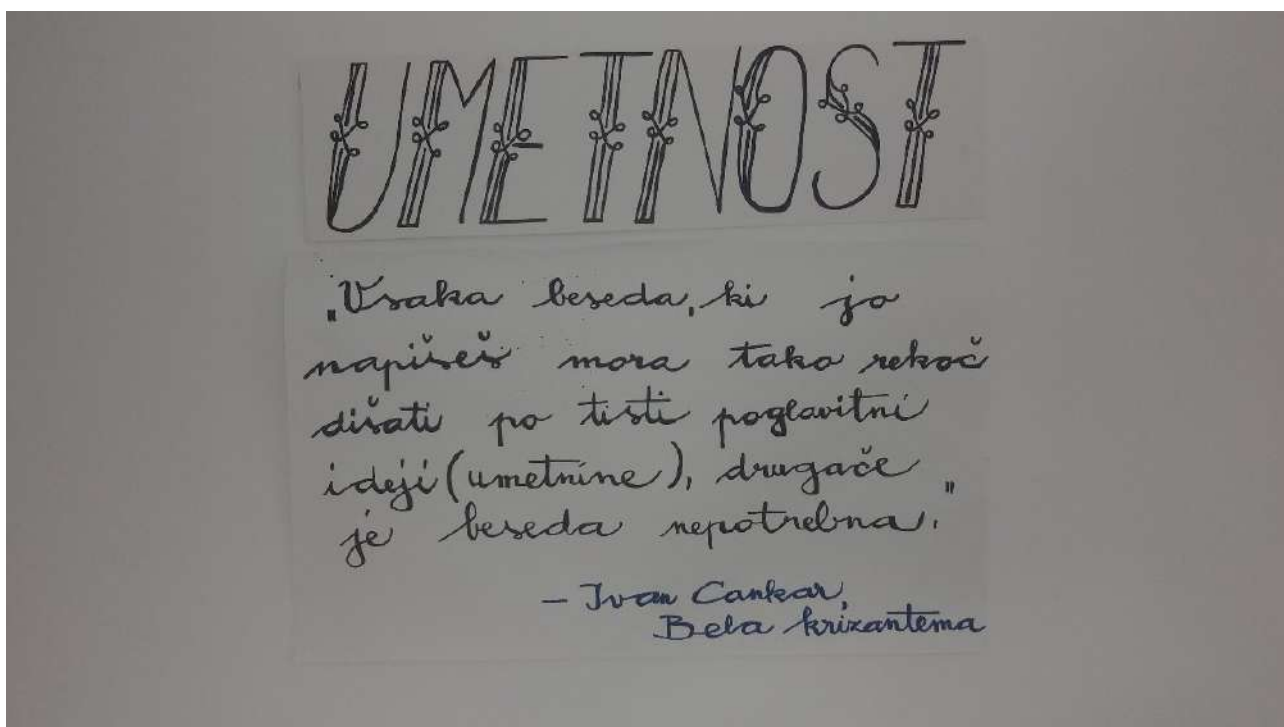 UMETNOST
„Vsaka beseda, ki jo
napišeš mora tako rekoč
dišati po tisti poglavitni
ideji (umetnine), drugače
je beseda nepotrebna."
– Ivan Cankar,
Bela krizantema